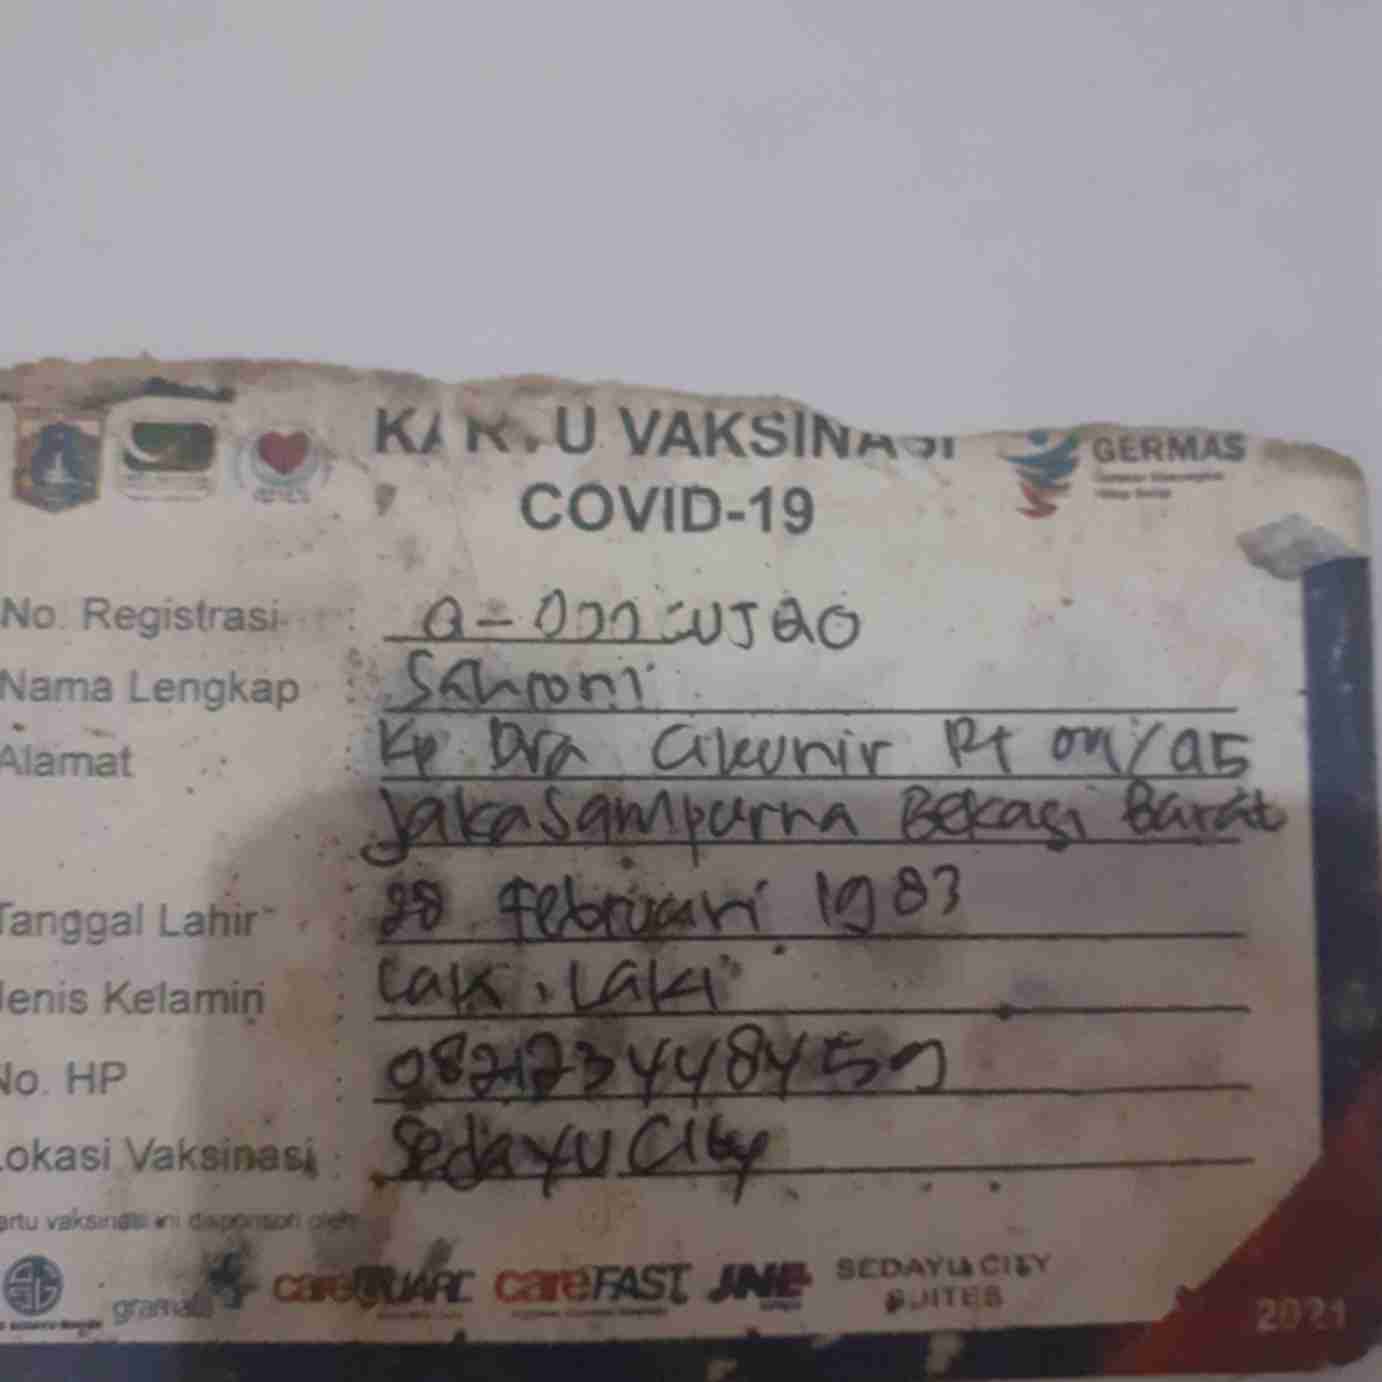 KARTU VAKSINASI
COVID-19
GERMAS
No. Registrasi :
Nama Lengkap : Sahroni
Alamat : Kp Dra Cikunir Rt
Jakasampurna Bekasi Barat
Tanggal Lahir : 28 Februari 1983
Jenis Kelamin : Lak. Laki
No. HP :
Lokasi Vaksinasi : Sedayu City
artu vaksinasi ini disponsori oleh
careFAST JNE SEDAYU CITY
SUITES
2021